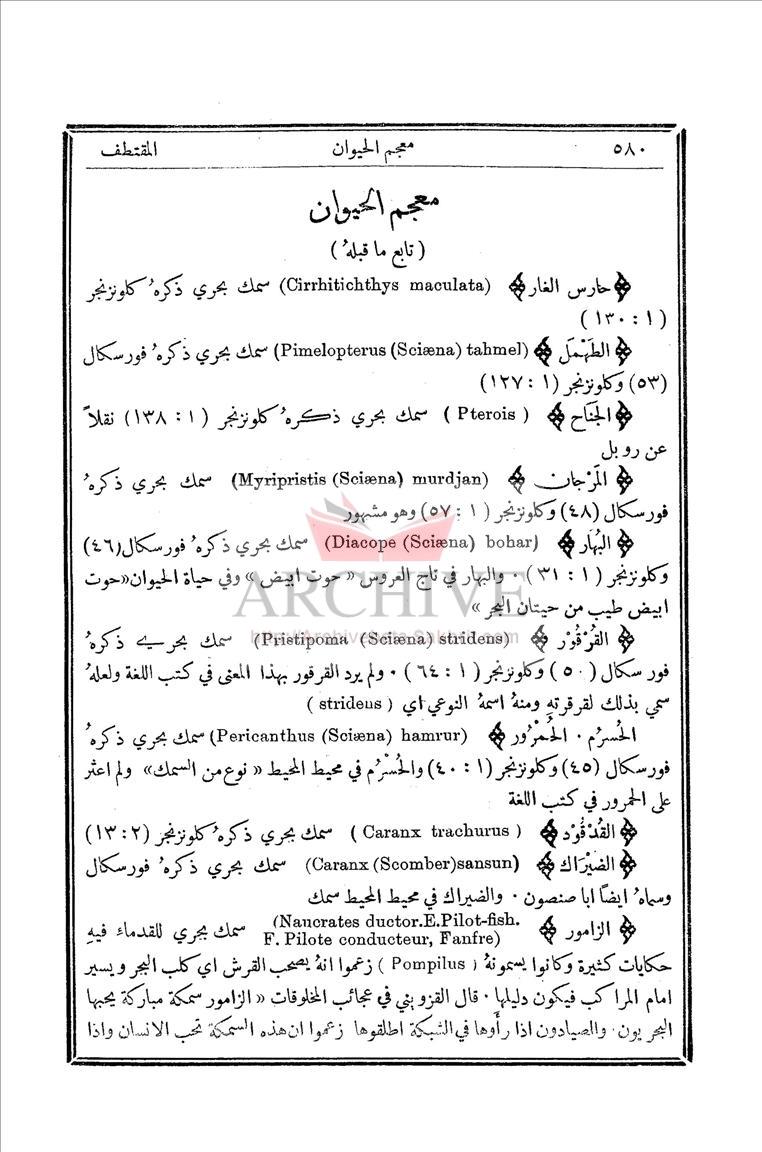 ٥٨٠ معجم الحيوان المقتطف
معجم الحيوان
( تابع ما قبلهُ )
﴿حارس الغار﴾ (Cirrhitichthys maculata) سمك بحري ذكرهُ كلونزنجر
( ١ : ١٣٠ )
﴿ الطَهْمَل ﴾ (Pimelopterus (Sciæna) tahmel) سمك بحري ذكرهُ فورسكال
(٥٣) وكلونزنجر (١ : ١٢٧)
﴿الجَنَاح ﴾ ( Pterois ) سمك بحري ذكرهُ كلونزنجر ( ١ : ١٣٨ ) نقلاً
عن روبل
﴿ المَرْجان ﴾ (Myripristis (Sciæna) murdjan) سمك بحري ذكرهُ
فورسكال (٤٨) وكلونزنجر ( ١ : ٥٧ ) وهو مشهور
﴿ البُهار ﴾ (Diacope (Sciæna) bohar) سمك بحري ذكرهُ فورسكال(٤٦)
وكلونزنجر ( ١ : ٣١ ) . والبهار في تاج العروس « حوت ابيض » وفي حياة الحيوان«حوت
ابيض طيب من حيتان البحر »
ARCHIVE
﴿ القُرْقُوْر ﴾ (Pristipoma (Sciæna) stridens) سمك بحري ذكرهُ
فورسكال ( ٥٠ ) وكلونزنجر ( ١ : ٦٤ ) . ولم يرد القرقور بهذا المعنى في كتب اللغة ولعلهُ
سمي بذلك لقرقرتهِ ومنهُ اسمهُ النوعي اي ( stridens )
الحُسرُم . الحُمْرُور ﴾ (Pericanthus (Sciæna) hamrur) سمك بحري ذكرهُ
فورسكال (٤٥) وكلونزنجر (١ : ٤٠) والحُسْرُم في محيط المحيط « نوع من السمك» ولم اعثر
على الحمرور في كتب اللغة
﴿ القُدْقُوْد ﴾ ( Caranx trachurus ) سمك بحري ذكرهُ كلونزنجر (٢ : ١٣)
﴿ الضَيْرَاك ﴾ (Caranx (Scomber)sansun) سمك بحري ذكرهُ فورسكال
وسماهُ ايضاً ابا صنصون . والضيراك في محيط المحيط سمك
﴿ الزامور ﴾ (Naucrates ductor.E.Pilot-fish. F. Pilote conducteur, Fanfre) سمك بحري للقدماء فيهِ
حكايات كثيرة وكانوا يسمونهُ ( Pompilus ) زعموا انهُ يصحب القرش اي كلب البحر ويسير
امام المراكب فيكون دليلها . قال القزويني في عجائب المخلوقات « الزامور سمكة مباركة يحبها
البحريون . والصيادون اذا رأَوها في الشبكة اطلقوها زعموا ان هذه السمكة تحب الانسان واذا